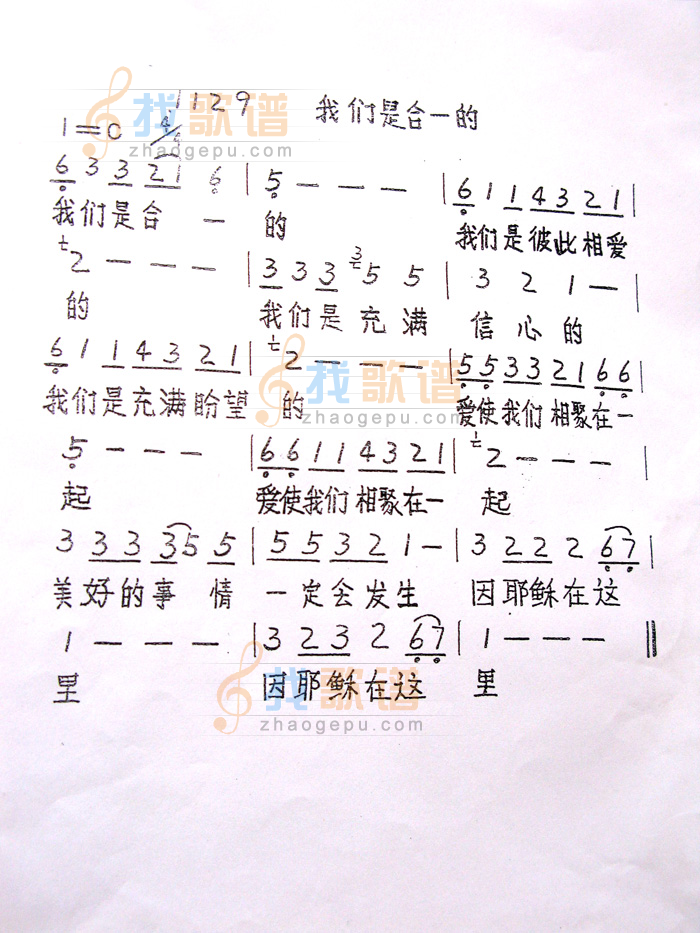 1129 我们是合一的
1=C 4/4
6 3 3 2 1 6 | 5 — — — | 6 1 1 4 3 2 1 |
我们是合一 的 我们是彼此相爱
2 — — — | 3 3 3 5 5 | 3 2 1 — |
的 我们是充满 信心的
6 1 1 4 3 2 1 | 2 — — — | 5 5 3 3 2 1 6 6 |
我们是充满盼望 的 爱使我们相聚在一
5 — — — | 6 6 1 1 4 3 2 1 | 2 — — — |
起 爱使我们相聚在一 起
3 3 3 3 5 5 | 5 5 3 2 1 — | 3 2 2 2 6 7 |
美好的事情 一定会发生 因耶稣在这
1 — — — | 3 2 3 2 6 7 | 1 — — — ‖
里 因耶稣在这 里
找歌谱
zhaogepu.com
找歌谱
zhaogepu.com
找歌谱
zhaogepu.com